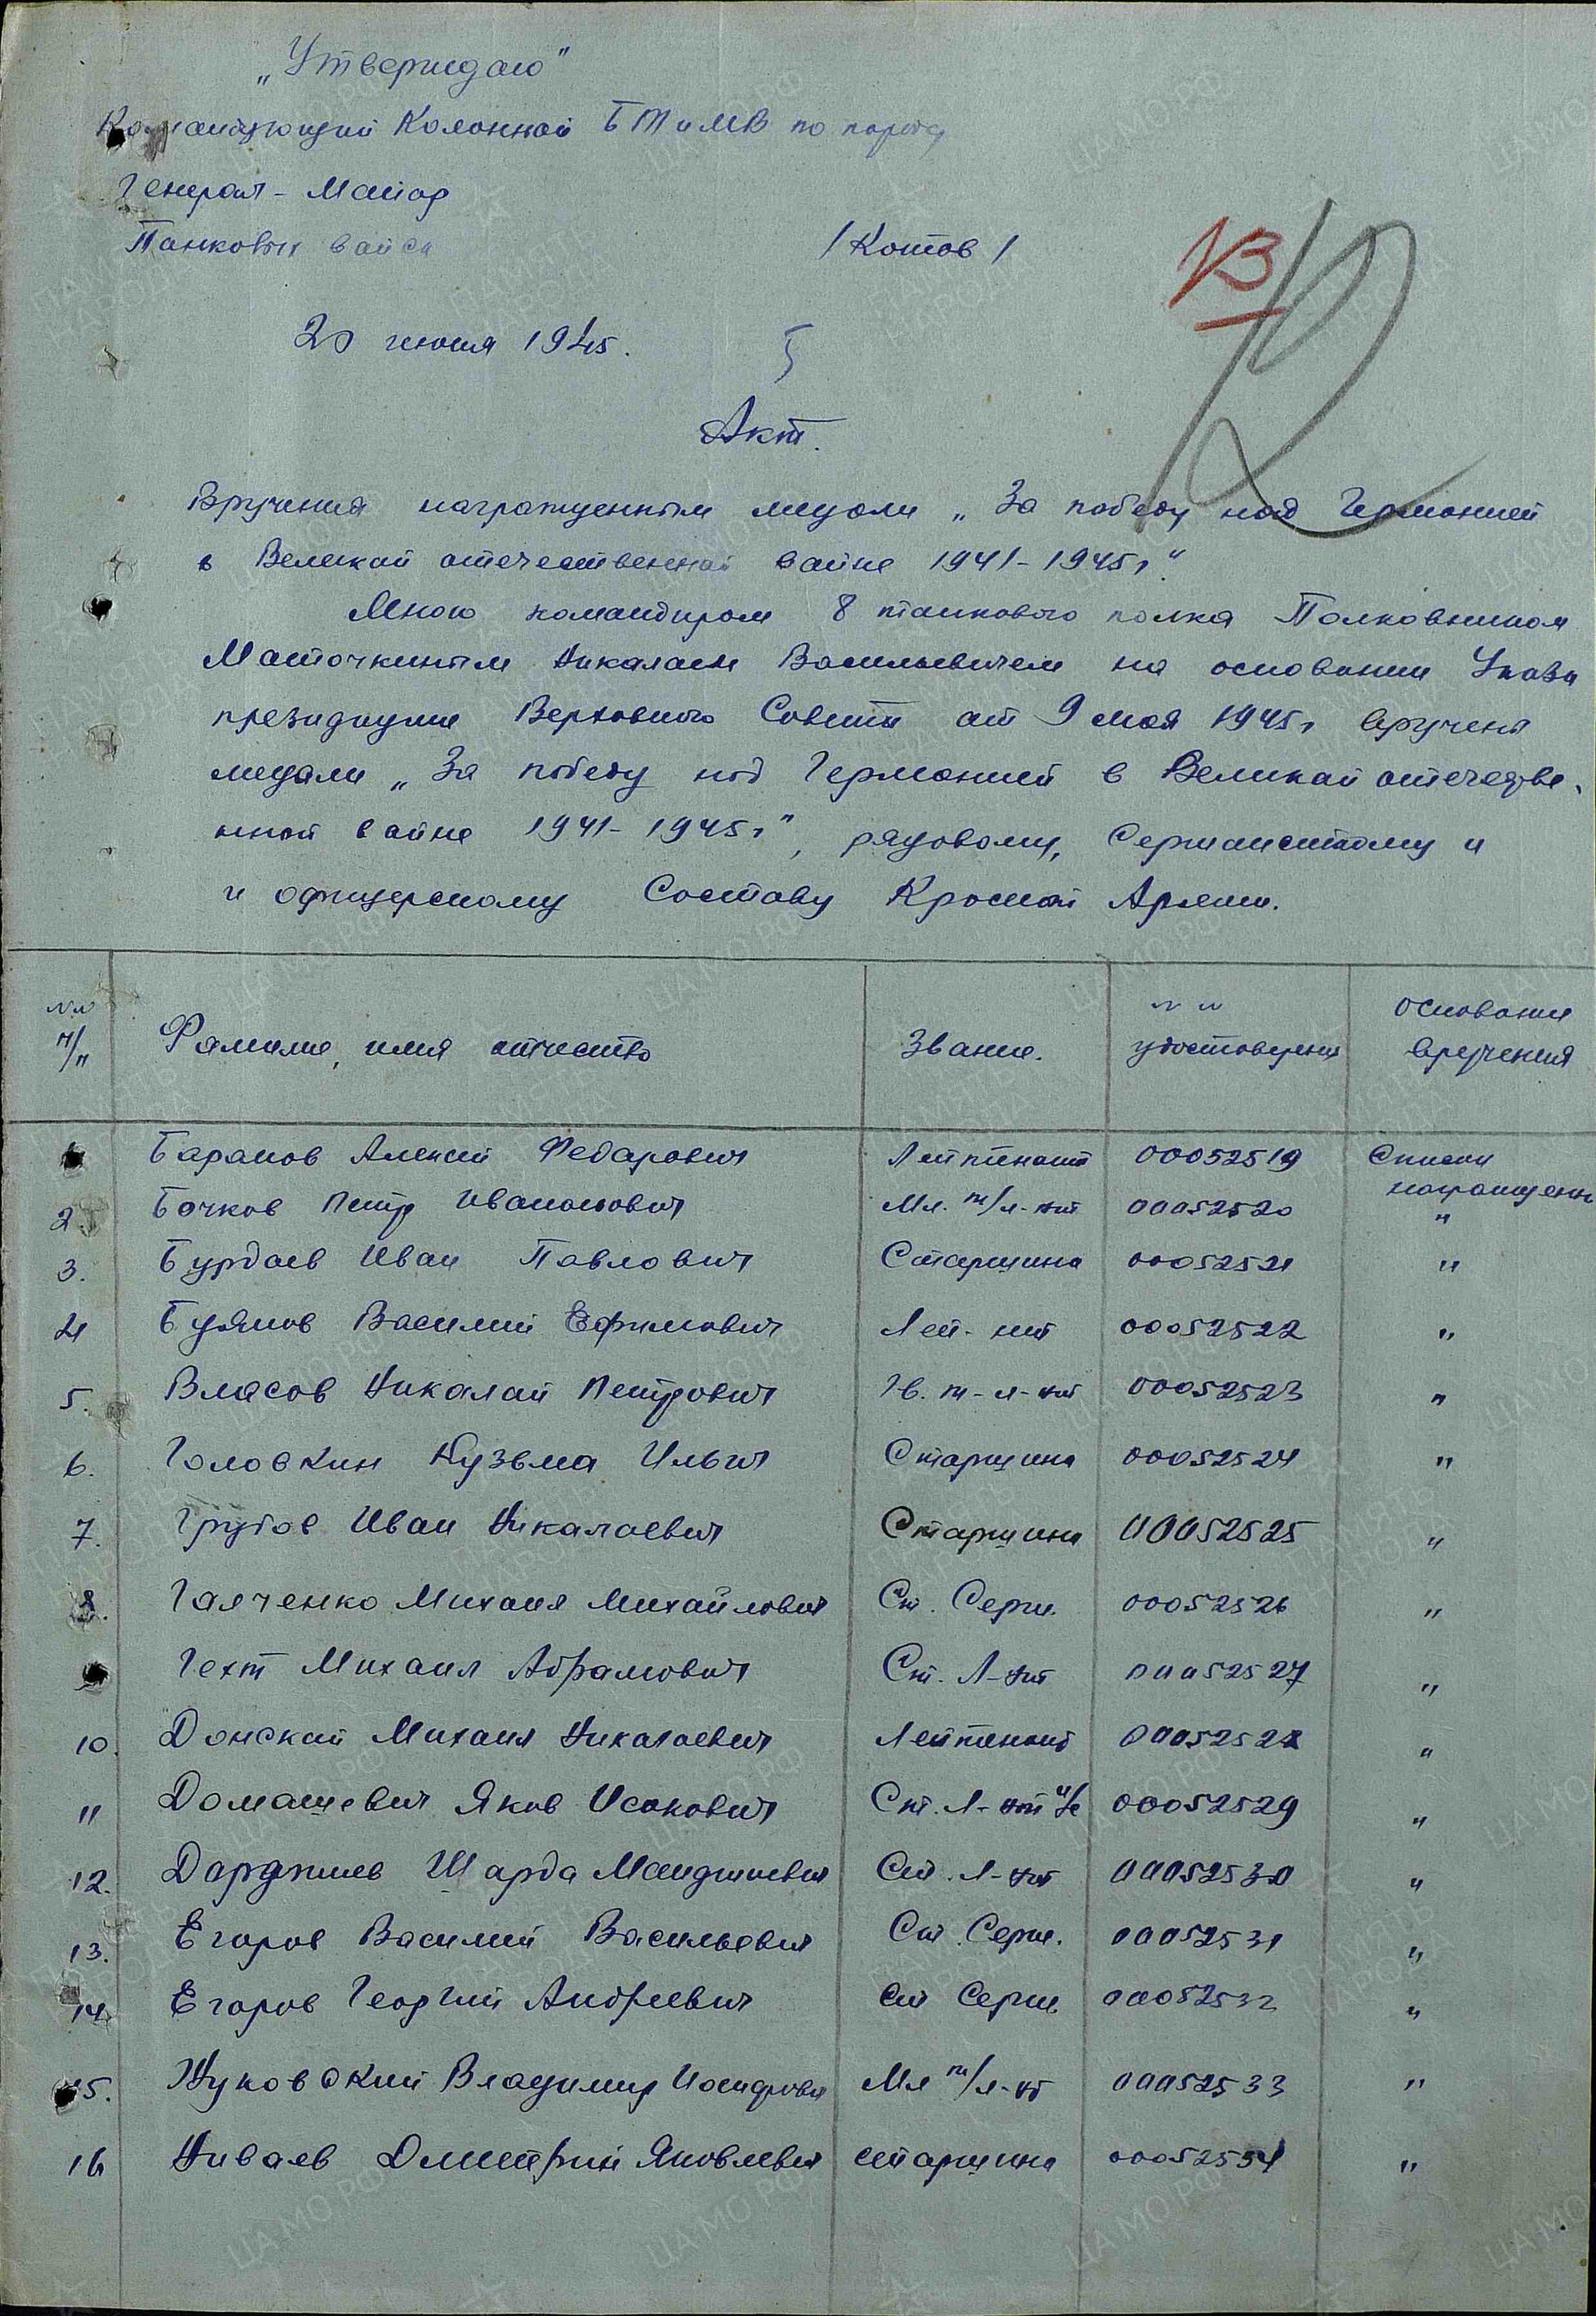 „Утверждаю"
Командующий Колонной БТ и МВ по параду
Генерал-Майор
Танковых войск /Котов/
13
12
20 июня 1945.
Акт.
Вручения награжденным медали „За победу над Германией
в Великой отечественной войне 1941-1945г."
Мною командиром 8 танкового полка Полковником
Маточкиным Николаем Васильевичем на основании Указа
президиума Верховного Совета от 9 мая 1945г вручены
медали „За победу над Германией в Великой отечестве-
нной войне 1941-1945г", рядовому, Сержантскому и
и офицерскому Составу Красной Армии.
№№ п/п Фамилие, имя отчество Звание. №№ удостоверения основание вручения
1 Баранов Алексей Федарович Лейтенант 00052519 Списки награжденн
2. Бочков Петр Иванович Мл. т/л-нт 00052520 "
3. Бурдаев Иван Павлович Старшина 00052521 "
4 Буянов Василий Ефимович Лей-нт 00052522 "
5. Власов Николай Петрович Гв. т-л-нт 00052523 "
6. Головкин Кузьма Ильич Старшина 00052524 "
7. Грубов Иван Никалаевич Старшина 00052525 "
8. Галченко Михаил Михайлович Ст. Серж. 00052526 "
Гехт Михаил Абрамович Ст. Л-нт 00052527 "
10. Донской Михаил Никалаевич Лейтенант 00052528 "
11 Домашевич Яков Исакович Ст. Л-нт и/с 00052529 "
12. Дорджиев Шарда Манджиевич Ст. Л-нт 00052530 "
13. Егоров Василий Васильевич Ст. Серж. 00052531 "
14. Егоров Георгий Андреевич Ст Серж. 00052532 "
15. Жуковский Владимир Иосифович Мл т/л-нт 00052533 "
16 Живаев Дмитрий Яковлевич старшина 00052534 "
ЦАМО РФ
ПАМЯТЬ НАРОДА